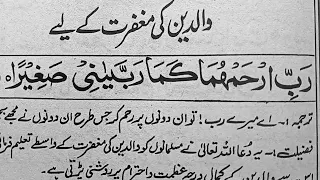 والدین کی مغفرت کے لیے
رَبِّ ارْحَمْهُمَا كَمَا رَبَّيَانِىْ صَغِيْرًا ه
ترجمہ :۔ اے میرے رب ! تو ان دونوں پر رحم کر جس طرح ان دونوں نے مجھے
فضیلت :۔ یہ دعا اللہ تعالیٰ نے مسلمانوں کو والدین کی مغفرت کے واسطے تعلیم
کمال درجہ عظمت و احترام پر روشنی پڑتی ہے۔